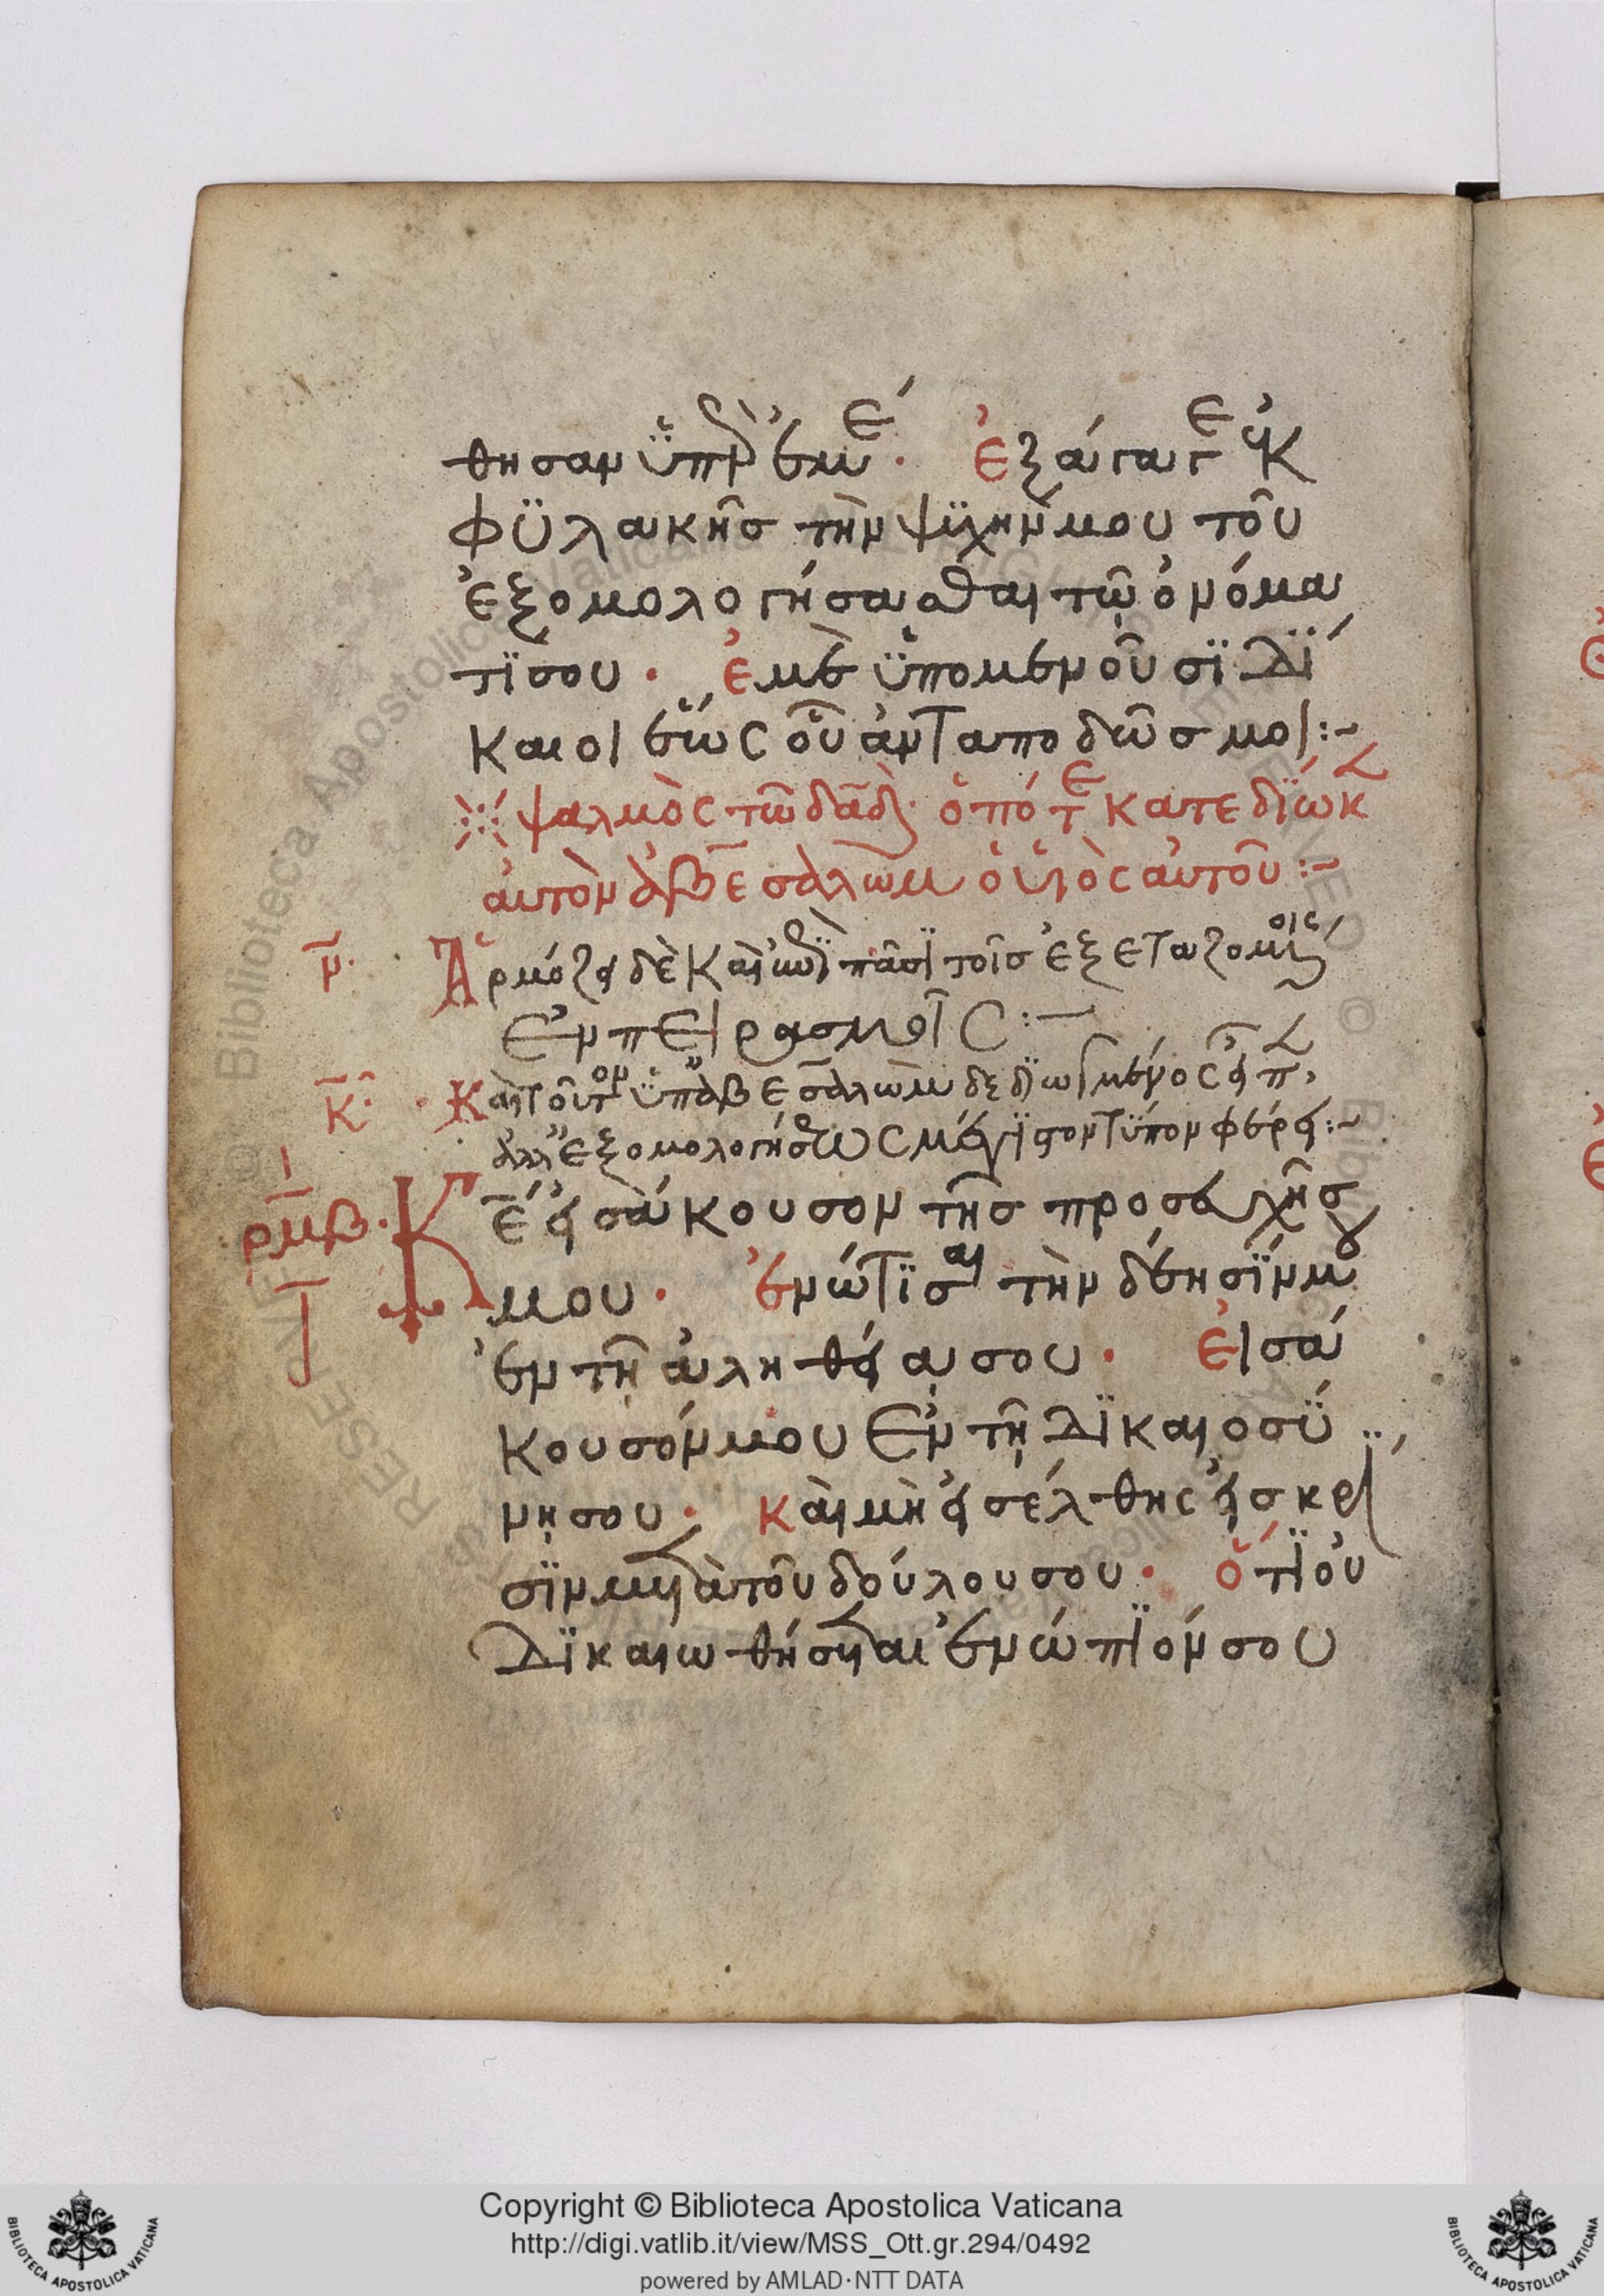 θησαν ϋπὲρ ἐμέ· Ἐξάγαγε ἐκ
φϋλακῆσ τὴν ψϋχήν μου τοῦ
ἐξομολογήσασθαι τῷ ὀνόμα
τΐ σου· ἐμὲ ϋπομενοῦσϊ δΐ
καιοι ἕως οὗ ἀνταποδῶσ μοι:~
ψαλμὸς τῶ δᾱδ· ὁπότε κατεδΐωκ
αὐτὸν ἀβεσαλὼμ ὁ υἱὸς αὐτοῦ:~
μ̄· Ἁρμόζει δὲ καὶ ὠδὴ πᾶσϊ τοῖσ ἐξεταζομένοις
ἐν πειρασμοῖς:—
κ̄· Καὶ τοῦτον ϋπ ἀβεσαλὼμ δεδϊωγμένος
ἐξομολογήσεως φέρει:~
ρμβ· Κε̄ εἰσάκουσον τῆσ προσευχῆσ
μου· ἐνώτϊσαι τὴν δέησΐν μου
ἐν τῇ ἀληθείᾳ σου· εἰσά
κουσόν μου ἐν τῇ δϊκαιοσΰ
νῃ σου· καὶ μὴ εἰσέλθης εἰσ κρΐ
σϊν μετὰ τοῦ δούλου σου· ὅτϊ οὐ
δϊκαιωθήσεται ἐνώπϊόν σου
Copyright © Biblioteca Apostolica Vaticana
http://digi.vatlib.it/view/MSS_Ott.gr.294/0492
powered by AMLAD·NTT DATA
BIBLIOTECA APOSTOLICA VATICANA
BIBLIOTECA APOSTOLICA VATICANA